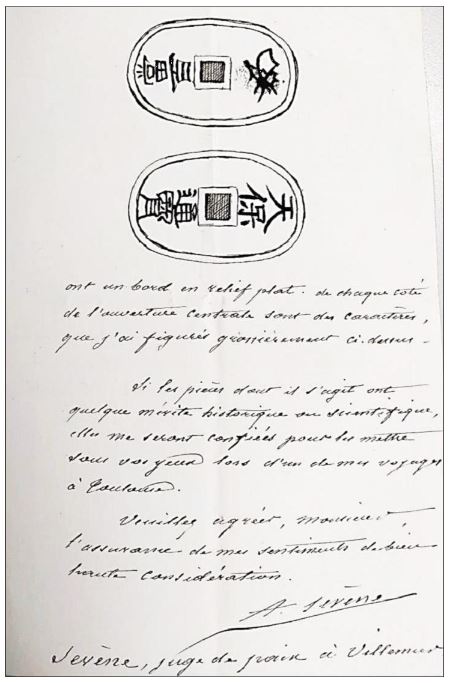 天保通寶
ont un bord en relief plat. de chaque côté
de l'ouverture centrale sont des caractères,
que j'ai figurés grossièrement ci-dessus -
Si les pièces dont il s'agit ont
quelque mérite historique ou scientifique,
elles me seront confiées pour les mettre
sous vos yeux lors d'un de mes voyages
à Toulouse.
Veuillez agréer, monsieur,
l'assurance de mes sentiments de bien
haute considération.
A. Sevène
Sevène, juge de paix à Villemur